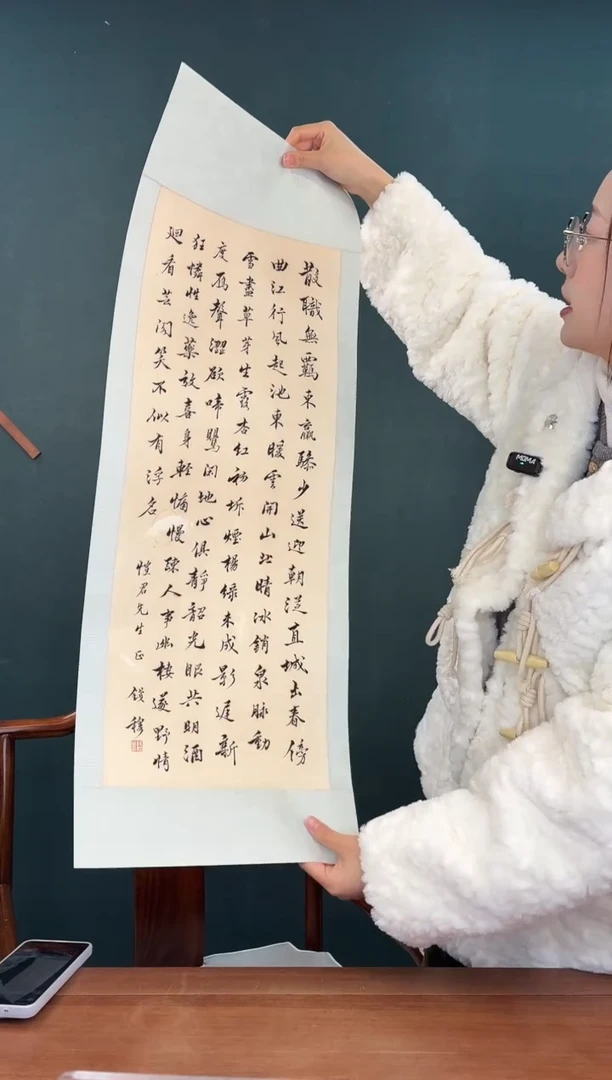 散職無羈束羸驂少送迎朝從直城出春傍
曲江行風起池東暖雲開山北晴冰銷泉脈動
雪盡草芽生露杏紅初坼煙楊綠未成影遲新
度雁聲澀欲啼鶯閑地心俱靜韶光眼共明酒
狂憐性逸藥放喜身輕慵慢疎人事幽棲遂野情
迴看芸閣笑不似有浮名
愷君先生正 錢穆
MOMA